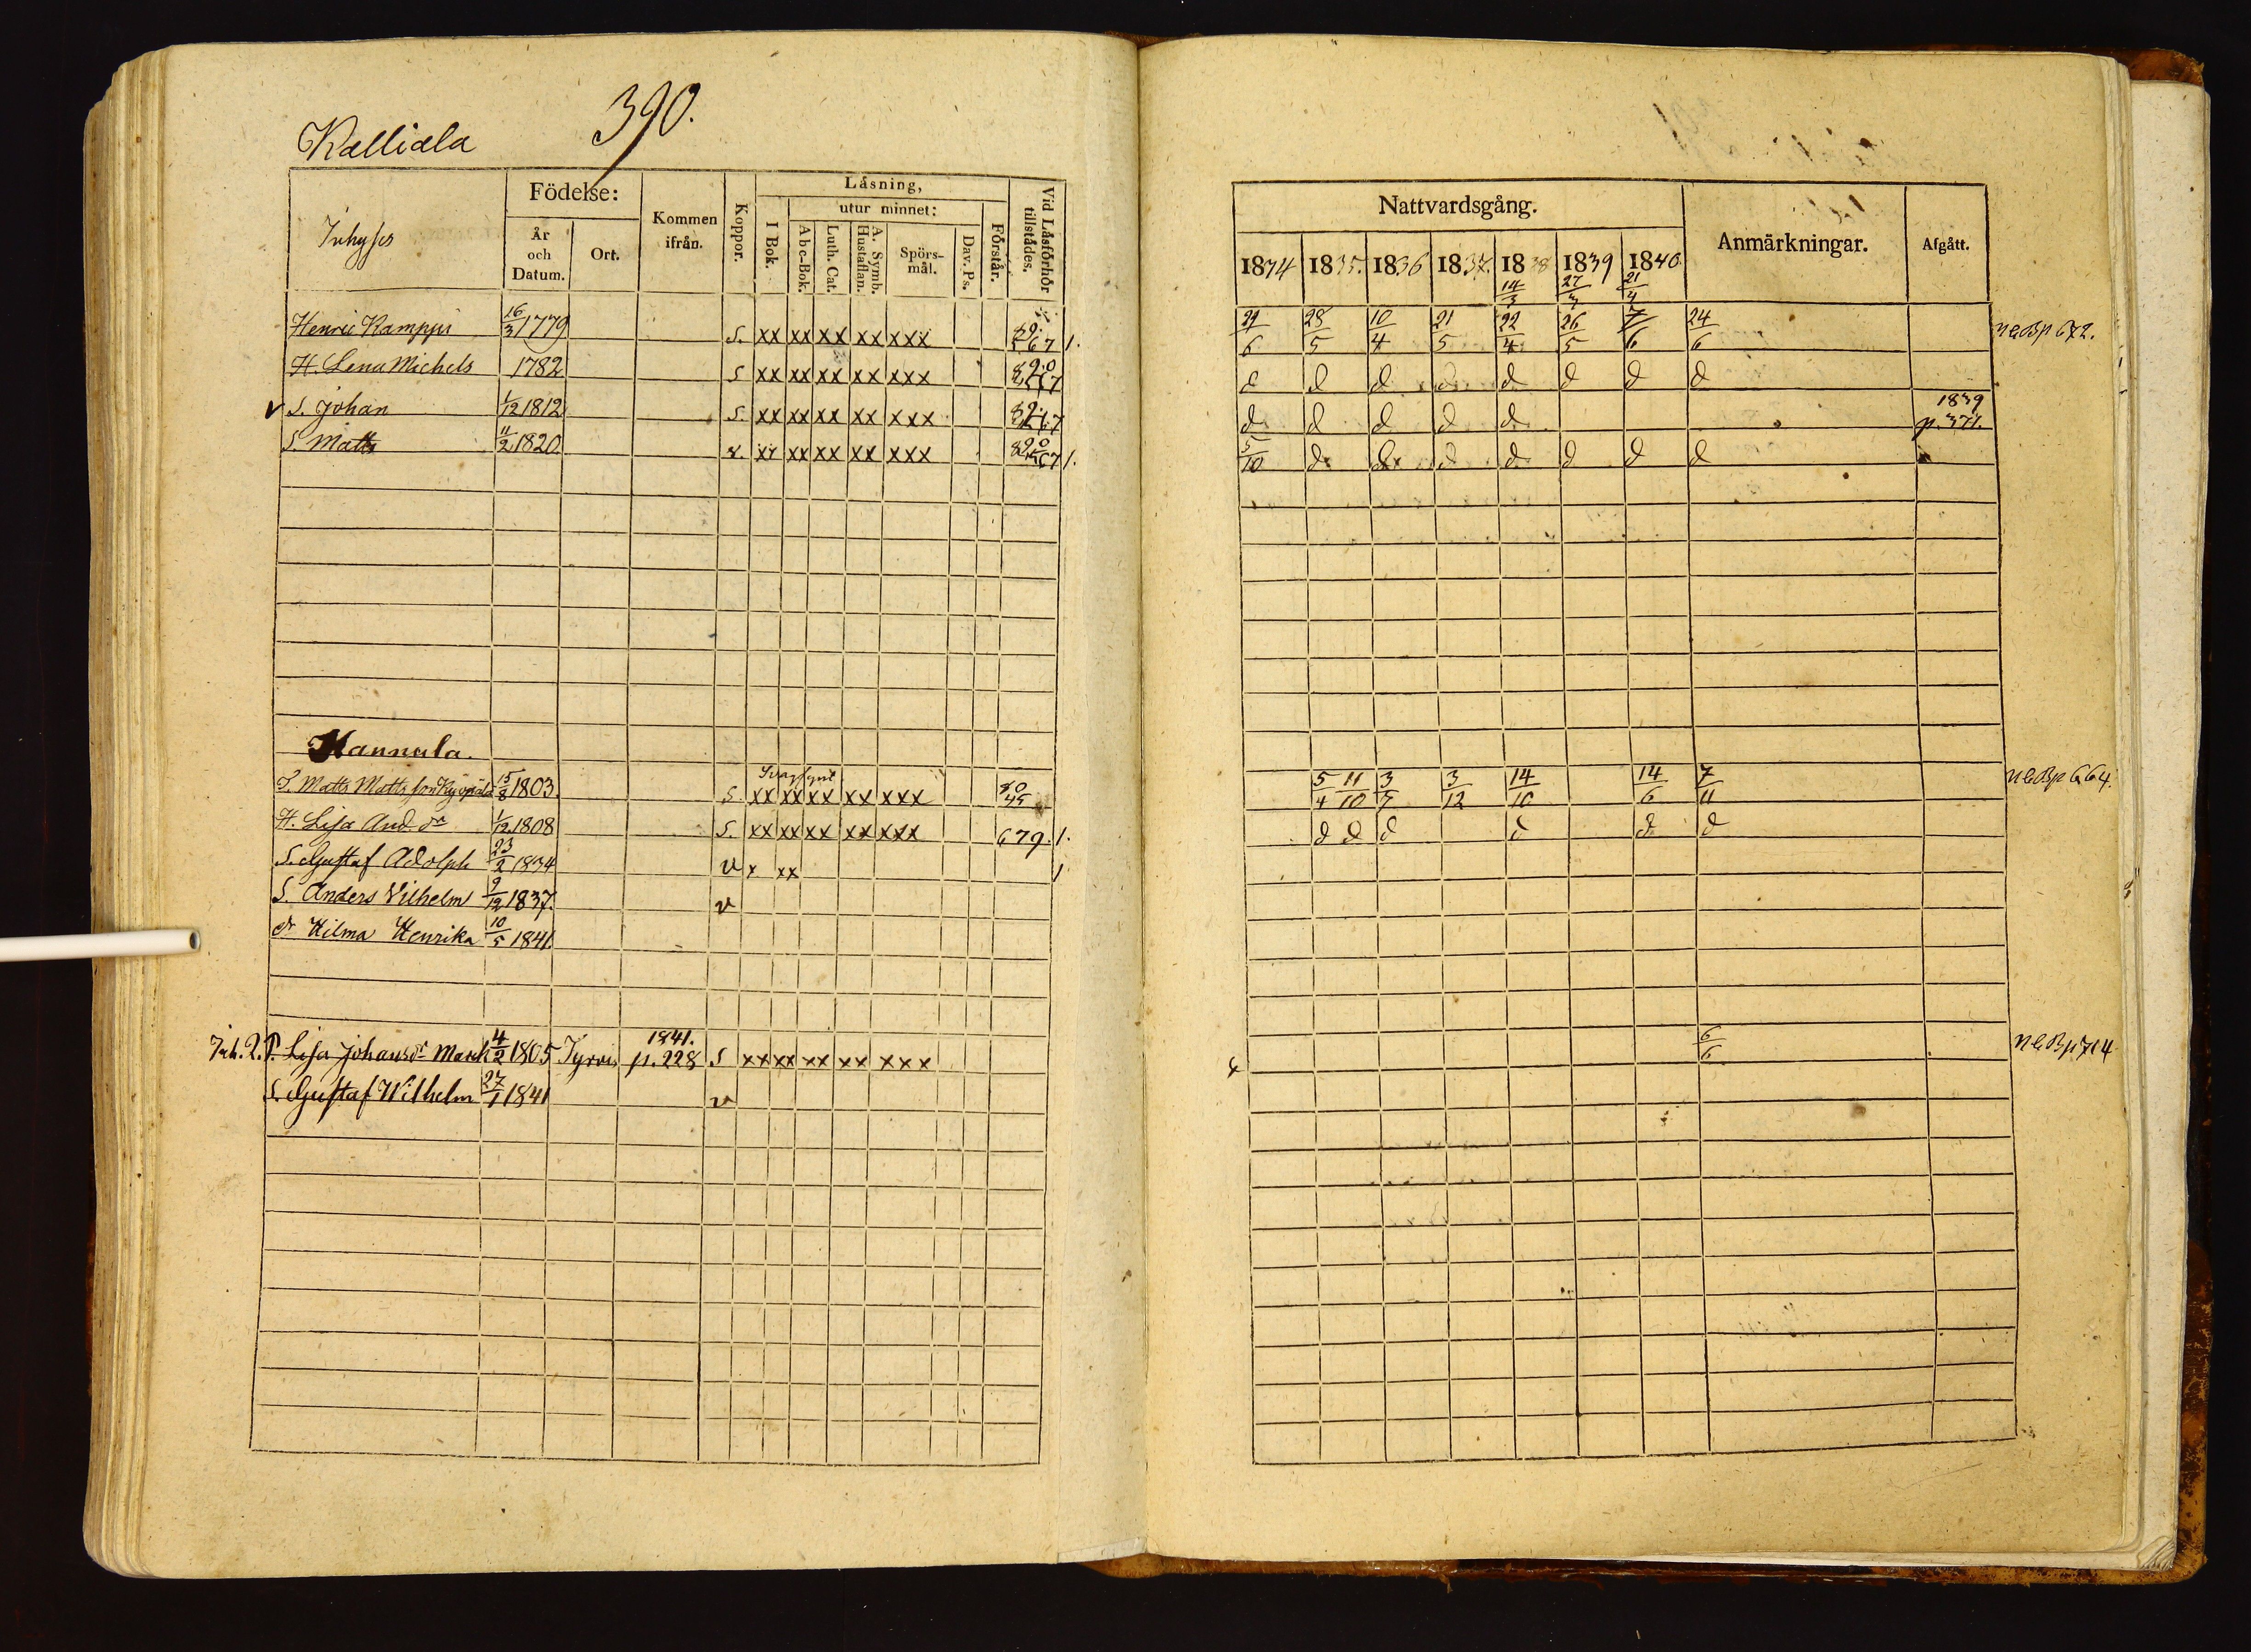 390.
Kalliala
Inhyses
Födelse:
År och Datum.
Ort.
Kommen ifrån.
Koppor.
Läsning,
I Bok.
utur minnet:
Abc-Bok.
Luth. Cat.
A. Symb. Hustaflan.
Spörs-mål.
Dav. Ps.
Förstår.
Vid Läsförhör tillstädes.
Henric Kamppi 16/3 1779 S. xx xx xx xx xxx 67 1.
H. Lena Michels 1782 S xx xx xx xx xxx
v S. Johan 1/12 1812 S. xx xx xx xx xxx
S. Matts 11/2 1820. v. xx xx xx xx xxx 1.
Hannula.
Svagsynt
Matts Mattsson 15/8 1803. S. xx xx xx xx xxx
H. Lisa And. dr 1/12 1808 S. xx xx xx xx xxx 679. 1.
S. Gustaf Adolph 23/2 1834 v x xx 1
S. Anders Vilhelm 9/12 1837. v
dr Hilma Henrika 10/5 1841.
Inh. 2. P. Lisa Johansdr 4/2 1805 Tyrvis 1841. p. 228 S xx xx xx xx xxx
S. Gustaf Wilhelm 27/1 1841 v
Nattvardsgång.
Anmärkningar.
Afgått.
1834 1835. 1836 1837. 1838 1839 1840.
14/3 27/3 21/4
29/6 28/5 10/4 21/5 22/4 26/5 7/6 24/6 n.B.p 672.
d d d d d d d d
d d d d d 1839 p. 371.
5/10 d d d d d d d
5/4 11/10 3/7 3/12 14/10 14/6 7/11 n.B.p 664.
d d d d d d
6/6 n.B.p 714